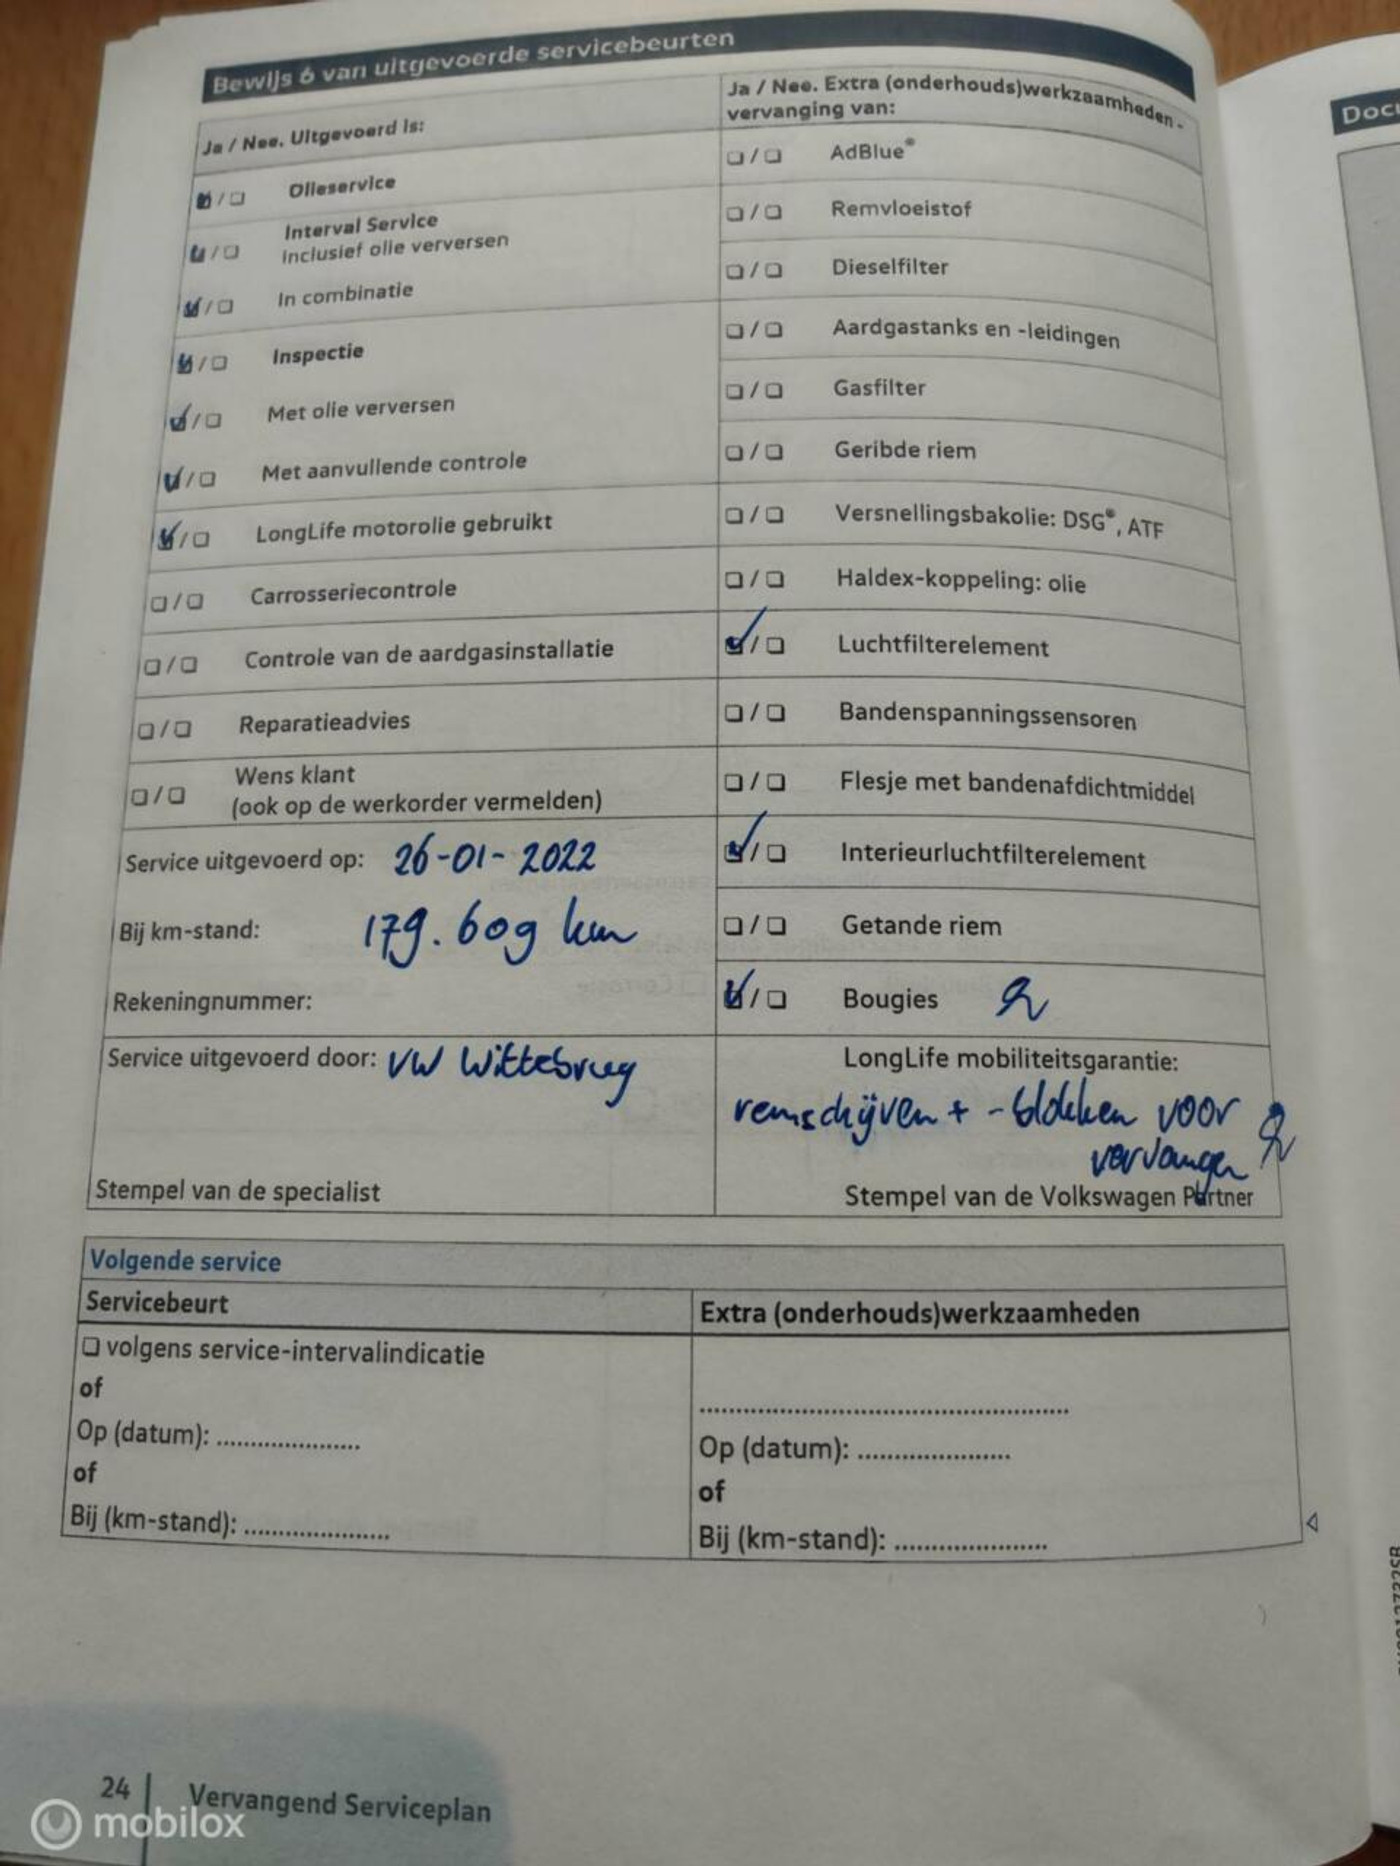 Bewijs 6 van uitgevoerde servicebeurten
Ja / Nee. Uitgevoerd is:
☑ / ☐ Olieservice
☑ / ☐ Interval Service
inclusief olie verversen
☑ / ☐ In combinatie
☑ / ☐ Inspectie
☑ / ☐ Met olie verversen
☑ / ☐ Met aanvullende controle
☑ / ☐ LongLife motorolie gebruikt
☐ / ☐ Carrosseriecontrole
☐ / ☐ Controle van de aardgasinstallatie
☐ / ☐ Reparatieadvies
☐ / ☐ Wens klant
(ook op de werkorder vermelden)
Service uitgevoerd op: 26-01-2022
Bij km-stand: 179.609 km
Rekeningnummer:
Service uitgevoerd door: VW Wittebrug
Stempel van de specialist
Ja / Nee. Extra (onderhouds)werkzaamheden -
vervanging van:
☐ / ☐ AdBlue®
☐ / ☐ Remvloeistof
☐ / ☐ Dieselfilter
☐ / ☐ Aardgastanks en -leidingen
☐ / ☐ Gasfilter
☐ / ☐ Geribde riem
☐ / ☐ Versnellingsbakolie: DSG®, ATF
☐ / ☐ Haldex-koppeling: olie
☑ / ☐ Luchtfilterelement
☐ / ☐ Bandenspanningssensoren
☐ / ☐ Flesje met bandenafdichtmiddel
☑ / ☐ Interieurluchtfilterelement
☐ / ☐ Getande riem
☑ / ☐ Bougies
LongLife mobiliteitsgarantie:
remschijven + -blokken voor
vervangen
Stempel van de Volkswagen Partner
Volgende service
Servicebeurt
☐ volgens service-intervalindicatie
of
Op (datum): .....................
of
Bij (km-stand): .....................
Extra (onderhouds)werkzaamheden
..................................................
Op (datum): .....................
of
Bij (km-stand): .....................
24 | Vervangend Serviceplan
mobilox
Docu